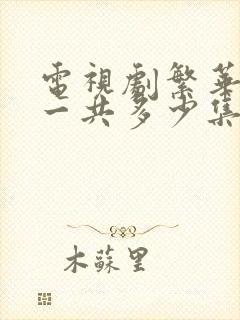 電視劇繁華
一共多少集
木蘇里